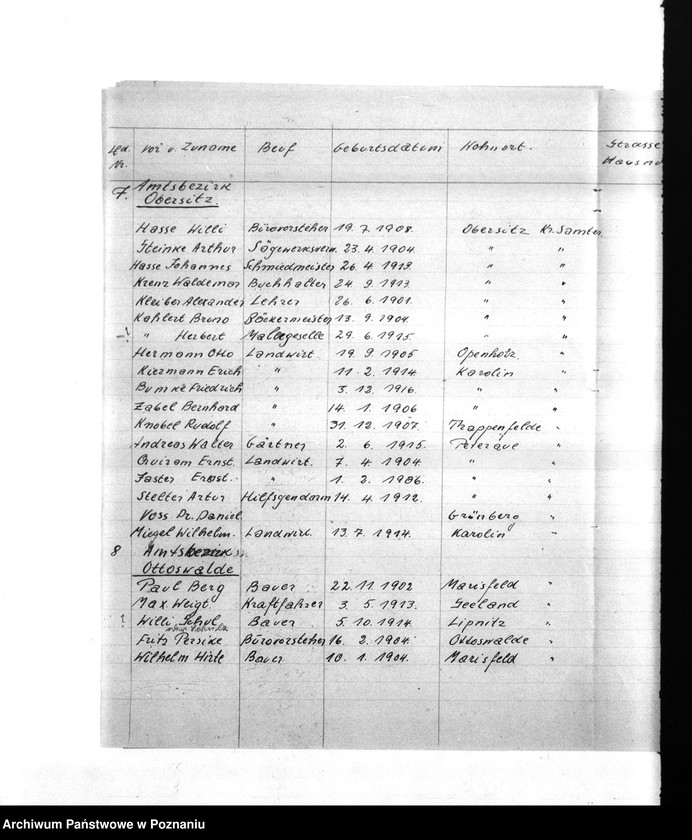 lfd. Vor u. Zuname Beruf Geburtsdatum Wohnort. Strasse
Nr. Hausnu
7. Amtsbezirk
Obersitz.
Hasse Willi Bürovorsteher 19. 7. 1908. Obersitz Kr. Samter
Steinke Arthur Sägewerksverw. 23. 4. 1904. " "
Hasse Johannes Schmiedmeister 26. 4 1913. " "
Krenz Waldemar Buchhalter 24. 9. 1913 " "
Kleiber Alexander Lehrer 26. 6. 1901. " "
Kahlert Bruno Bäckermeister 13. 9. 1904. " "
-! " Herbert Malergeselle 29. 6. 1915. " "
Hermann Otto Landwirt. 19. 9. 1905 Openholz. "
Kiermann Erich " 11. 2. 1914. Karolin "
Bumke Friedrich " 3. 12. 1916. " "
Zabel Bernhard " 14. 1. 1906 " "
Knobel Rudolf " 31. 12. 1907. Trappenfelde "
Andreas Walter Gärtner 2. 6. 1915. Peteraue "
Ernst. Landwirt. 7. 4. 1904. " "
Faster Ernst. " 1. 2. 1906. " "
Stelter Artur Hilfsgendarm 14. 4. 1912. " "
Voss Dr. Daniel. Grünberg "
Miegel Wilhelm. Landwirt. 13. 7. 1914. Karolin "
8 Amtsbezirk
Ottoswalde
Paul Berg Bauer 22. 11. 1902 Marisfeld "
Max Weigt. Kraftfahrer 3. 5. 1913. Seeland "
! Willi Schul Bauer 5. 10. 1914. Lipnitz "
Fritz Persike Bürovorsteher 16. 2. 1904. Ottoswalde "
Wilhelm Hirte Bauer 10. 1. 1904. Marisfeld "
Archiwum Państwowe w Poznaniu